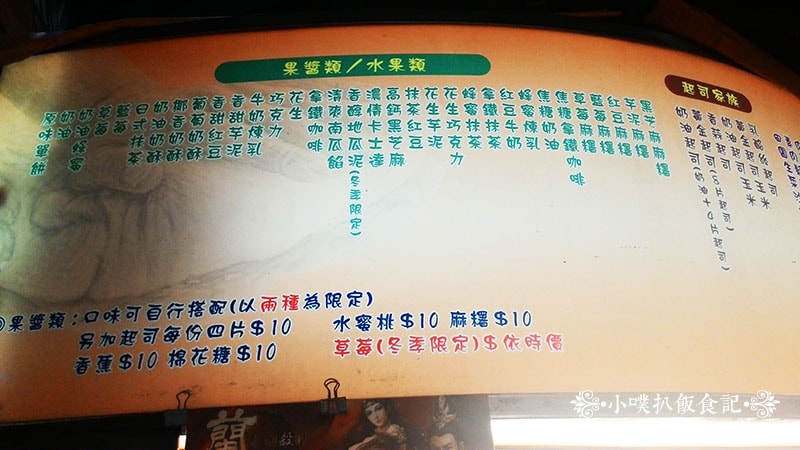 果醬類/水果類
起司家族
黑芝麻麻糬
芋泥麻糬
紅豆麻糬
藍莓麻糬
草莓麻糬
焦糖拿鐵咖啡
焦糖奶油
蜂蜜煉乳
紅豆牛奶
拿鐵抹茶
蜂蜜抹茶
花生巧克力
花生芋泥
抹茶紅豆
高鈣黑芝麻
濃情卡士達
香醇地瓜泥(冬季限定)
清爽南瓜餡
拿鐵咖啡
花生
巧克力
牛奶煉乳
香甜芋泥
香甜紅豆
葡萄奶酥
椰香奶酥
奶油奶酥
日式抹茶
藍莓
草莓
奶油蜂蜜
奶油
原味單餅
◎果醬類:口味可自行搭配(以兩種為限定)
另加起司每份四片$10
香蕉$10 棉花糖$10
水蜜桃$10 麻糬$10
草莓(冬季限定)$依時價
蘭
小噗扒飯食記